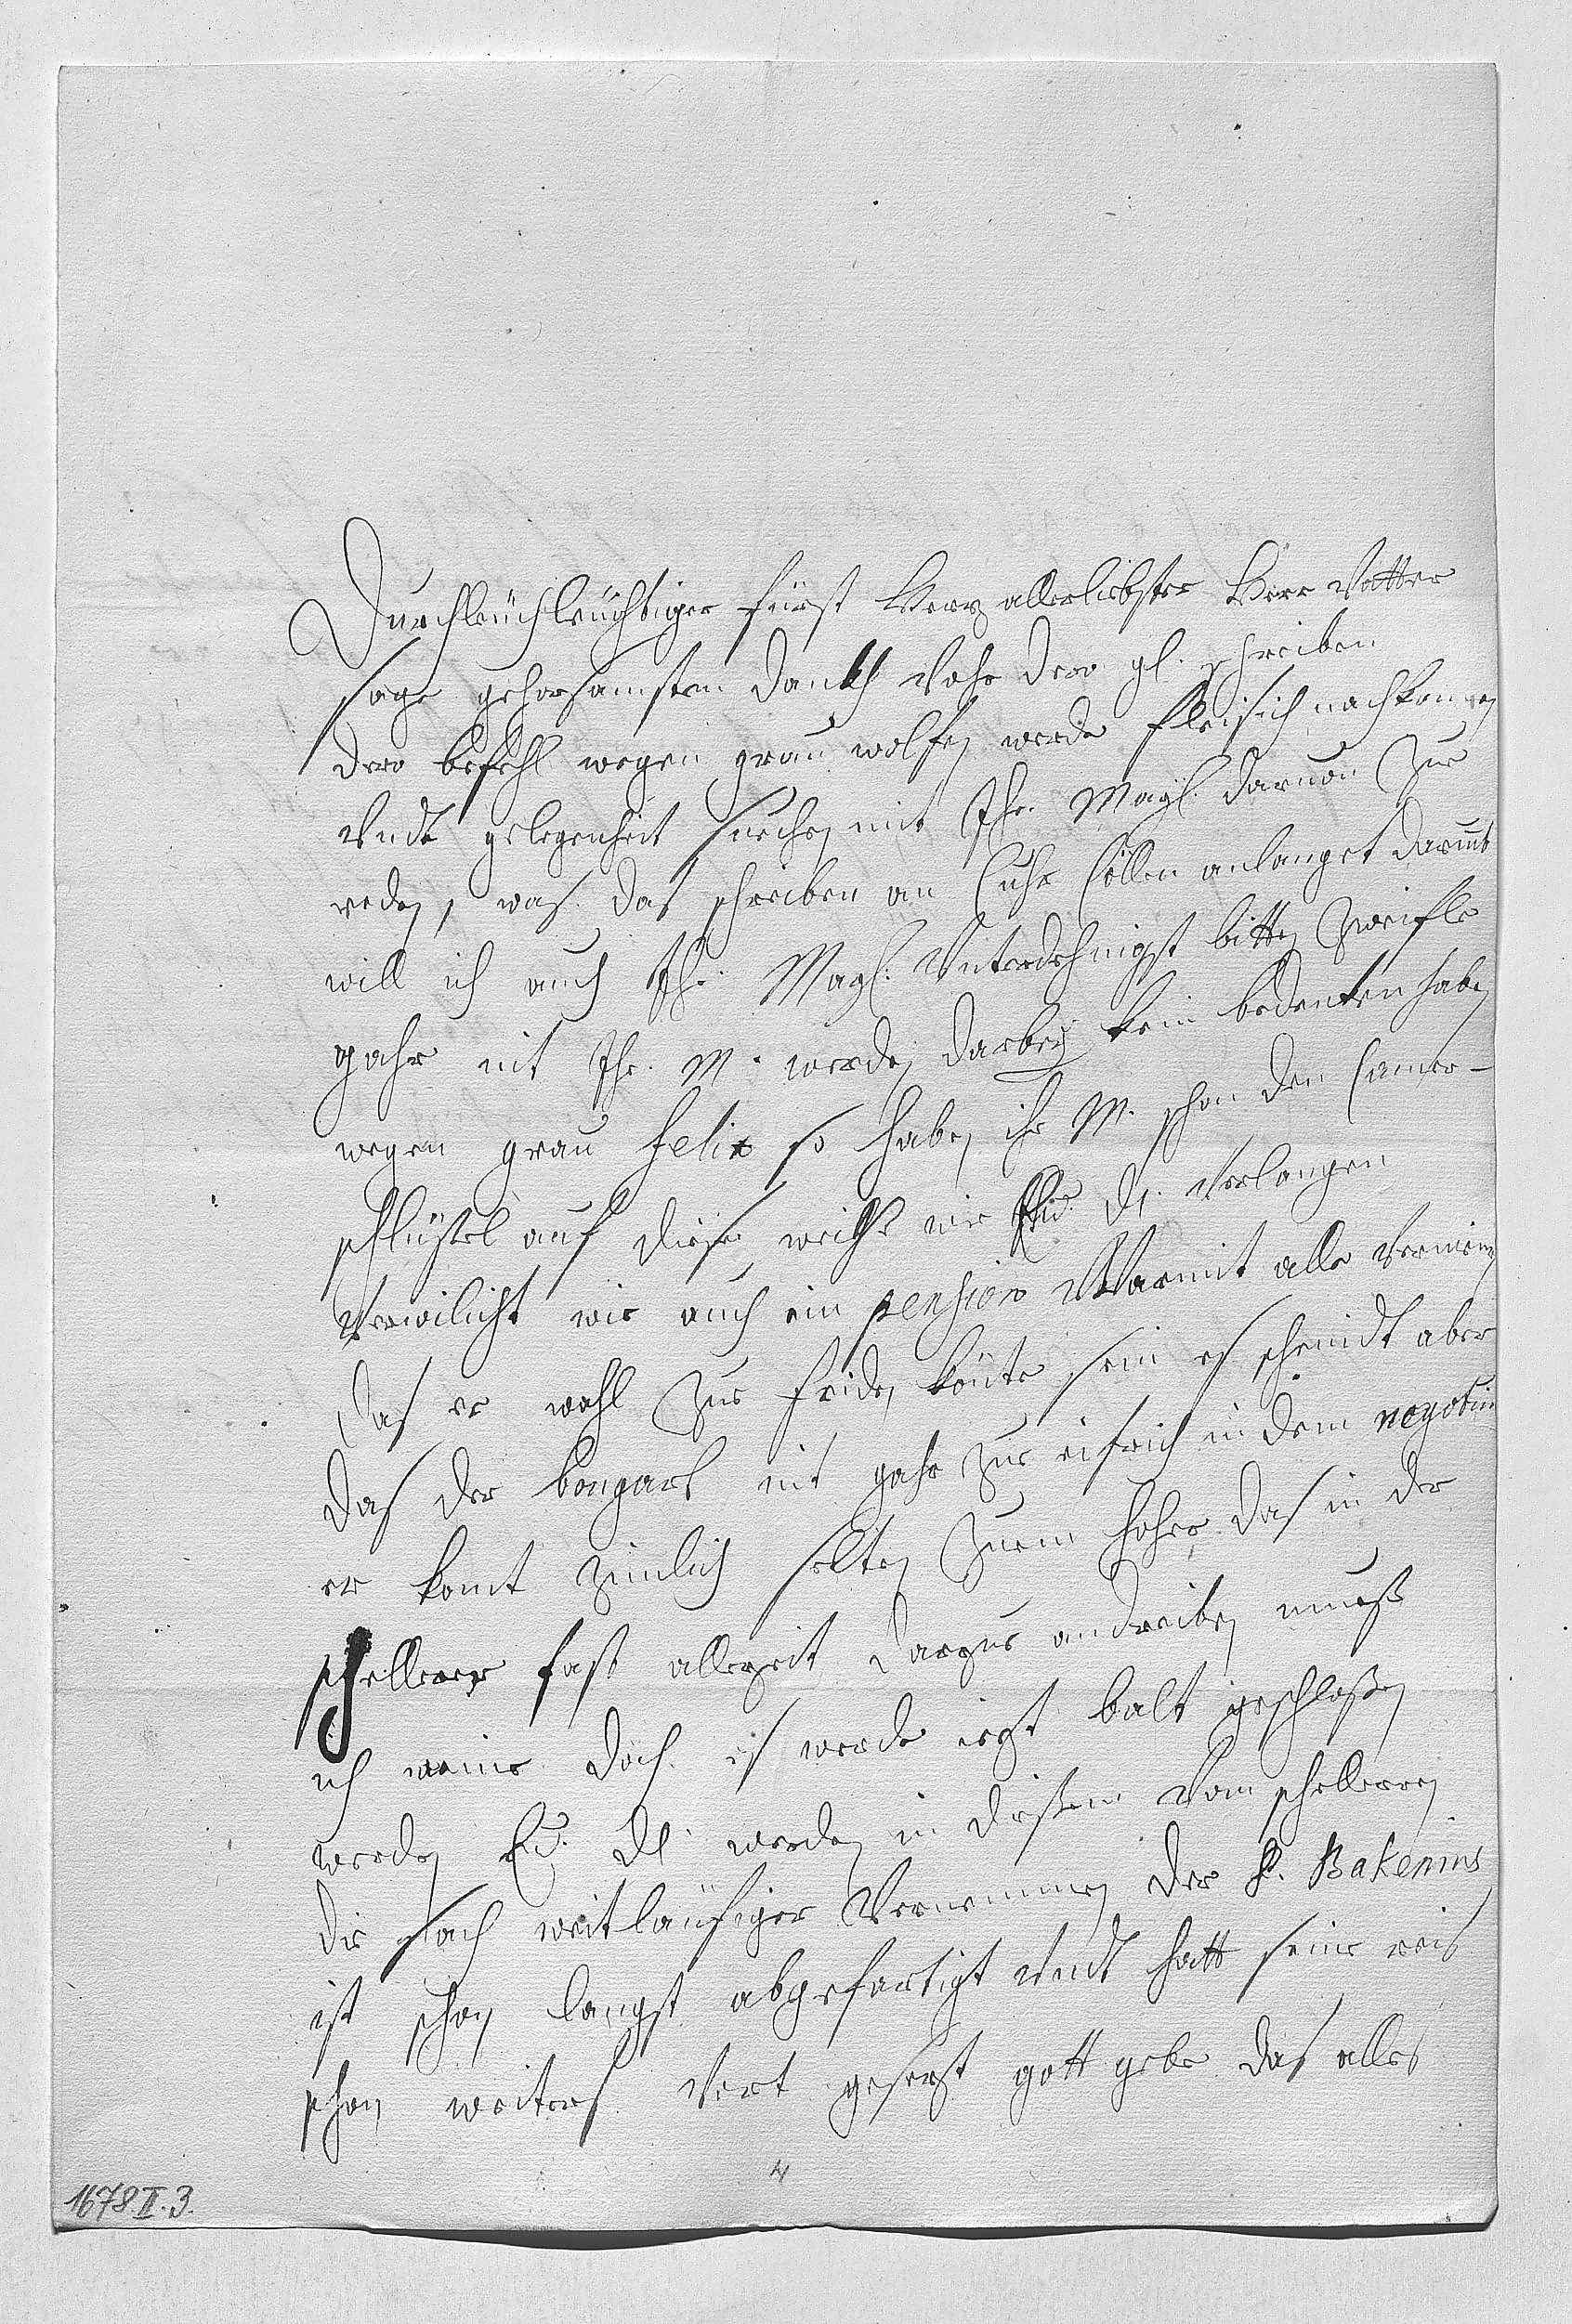 Durchleüchleüchtiger fürst Herz allerliebster Herr Vatter
sage gehorsamsten danckh Vohr dero gl. schreiben
dero befehl wegen grau wolfen werde fleisich nachkomen
Undt gelegenheit suechen mit Ihr. Mayl. daruon zue
reden, was das schreiben an Cuhr Cöllen anlanget darumb
will ich auch Ih. Mayl. Unterdehnigst bitten zweifle
gahr nit Ihr. M. werden darbey kein bedencken haben
wegen grau felix so haben ihr M. schon den Camer-
schlüssel auf diese weihs wie Eu. Dl. verlangen
verwilicht wie auch ein pension Warmit alle vermeinen
das er wohl zue friden könte sein es scheindt aber
das der bongart nit gahr zue eifrich in dem negotium
er komt zimlich selten zuem hoher das in der
schellerer fast allezeit darzue andreiben muess
ich meine doch es werde iezt balt geschlossen
werden Eu. Dl. werden in dissem vom schellerer
die sach weitläufiger Vernemmen der P. Bakenius
ist schon langst abgefartigt undt hatt seine reis
schon weiters Vort gesezt gott gebe das alles
4
1678.II.3.